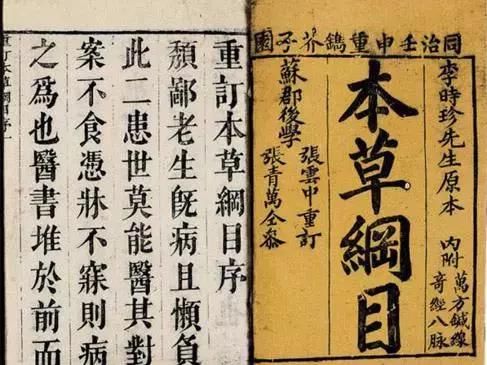 同治壬申重鐫芥子園
李時珍先生原本
內附萬方鍼線
奇經八脉
本草綱目
蘇郡後學
張雲中重訂
張青萬仝叅
重訂本草綱目序
頹鄙老生旣病且懶負
此二患世莫能醫其對
案不食憑牀不寐則病
之爲也醫書堆於前而
重訂本草綱目序